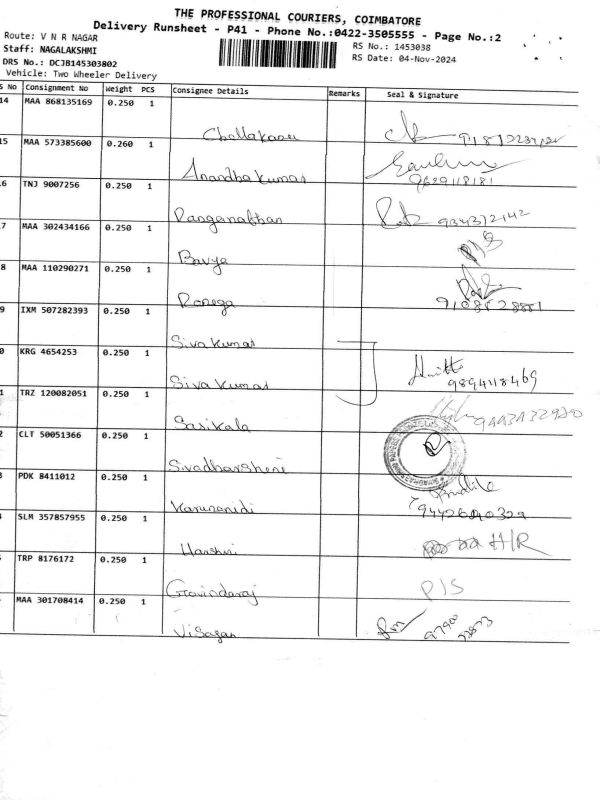 THE PROFESSIONAL COURIERS, COIMBATORE
Delivery Runsheet - P41 - Phone No.:0422-3505555 - Page No.:2
Route: V N R NAGAR
RS No.: 1453038
Staff: NAGALAKSHMI
RS Date: 04-Nov-2024
DRS No.: DCJB145303802
Vehicle: Two Wheeler Delivery
S No Consignment No Weight PCS Consignee Details Remarks Seal & Signature
14 MAA 868135169 0.250 1
15 MAA 573385600 0.260 1 Anandha kumar 9629118181
6 TNJ 9007256 0.250 1 Ranganathan 934312142
7 MAA 302434166 0.250 1 Bavya
8 MAA 110290271 0.250 1
9 IXM 507282393 0.250 1 Siva kumar
0 KRG 4654253 0.250 1 Siva kumar 9894118469
1 TRZ 120082051 0.250 1 Sasikala
2 CLT 50051366 0.250 1 Sivadharshene
3 PDK 8411012 0.250 1 Karunanidi
SLM 357857955 0.250 1 Harshni H/R
TRP 8176172 0.250 1 Govindaraj P/S
MAA 301708414 0.250 1 Visagan